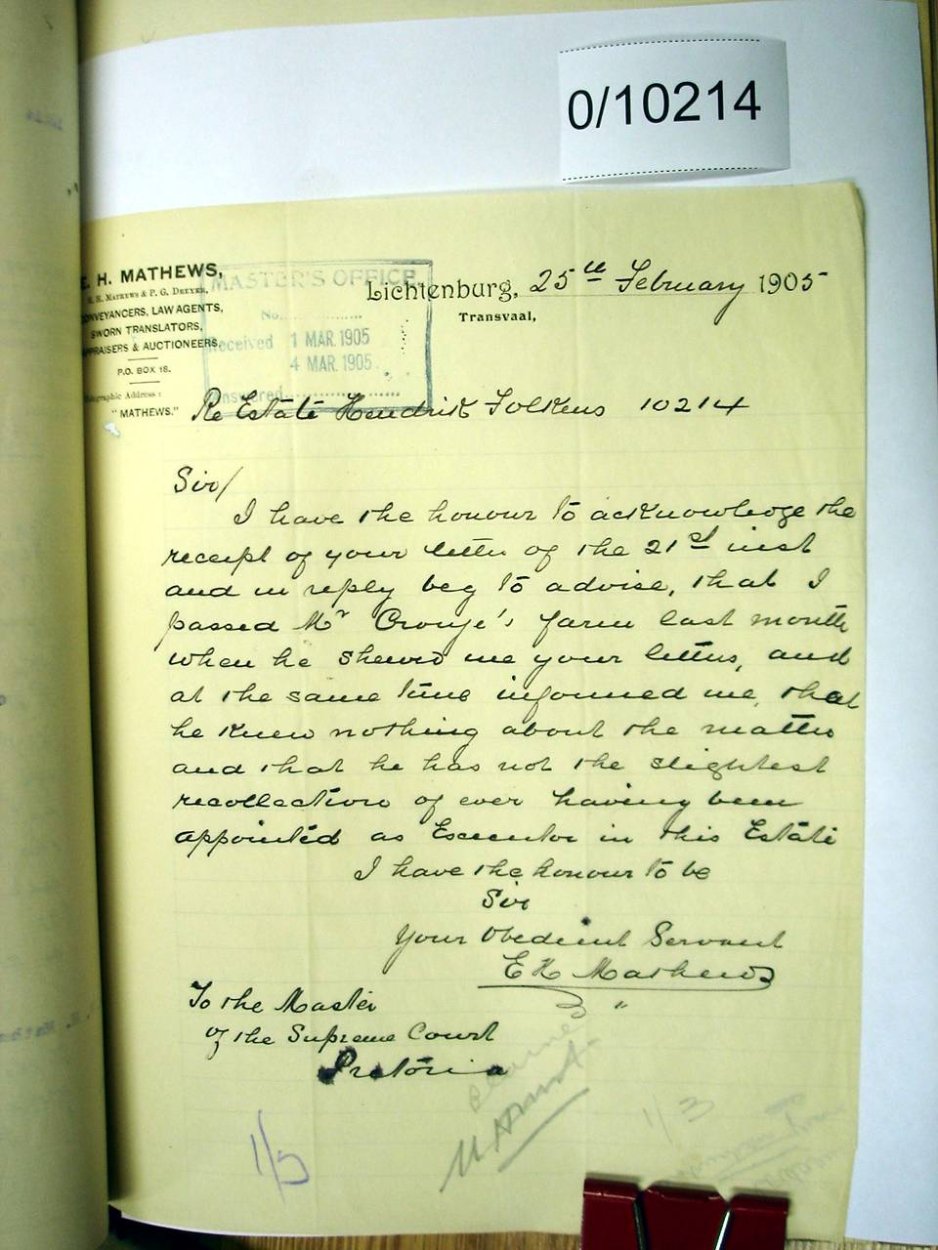 0/10214
E. H. MATHEWS,
E. H. MATHEWS & P. G. DREYER,
CONVEYANCERS, LAW AGENTS,
SWORN TRANSLATORS,
APPRAISERS & AUCTIONEERS.
P.O. BOX 18.
Telegraphic Address:
"MATHEWS."
MASTER'S OFFICE
No.
Received 1 MAR. 1905
4 MAR. 1905
Answered
Lichtenburg, 25th February 1905
Transvaal,
Re Estate Hendrik Folkens 10214
Sir/
I have the honour to acknowledge the
receipt of your letter of the 21st inst
and in reply beg to advise, that I
passed Mr Cronje's farm last month
when he shewed me your letters, and
at the same time informed me, that
he knew nothing about the matter
and that he has not the slightest
recollection of ever having been
appointed as Executor in this Estate
I have the honour to be
Sir
Your Obedient Servant
E H Mathews
To the Master
of the Supreme Court
Pretoria
1/3